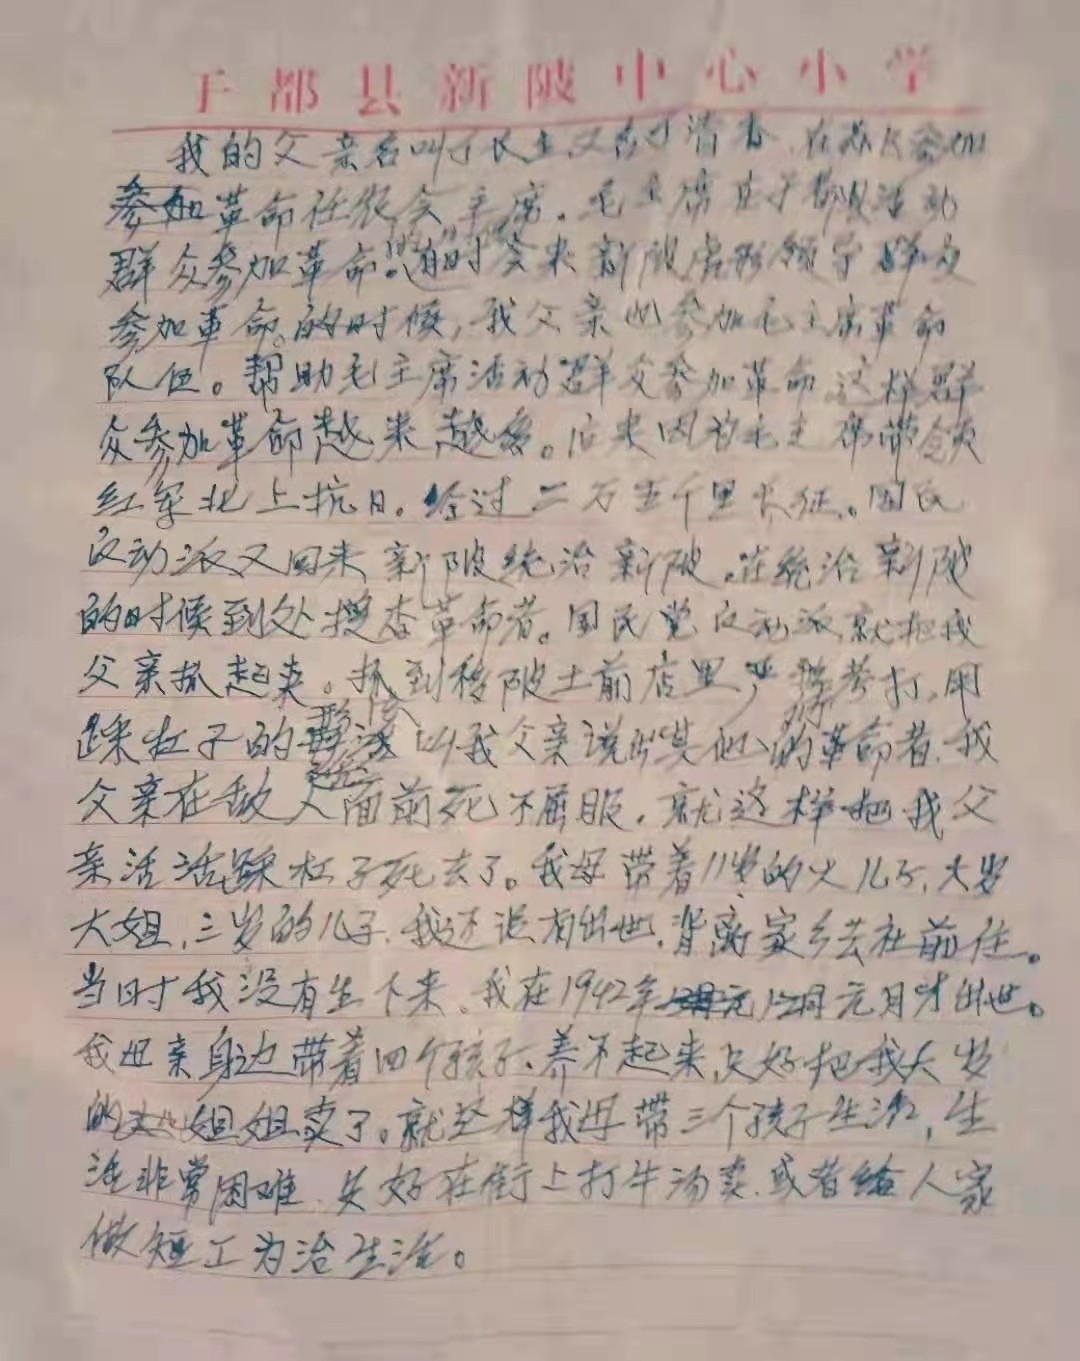 于都县新陂中心小学
我的父亲名叫丁长生又名丁清春.在苏区参加
参加革命任农会主席。毛主席在于都县活动
群众参加革命。有时会来新陂 领导群众
参加革命。的时候,我父亲也参加毛主席革命
队伍。帮助毛主席活动群众参加革命.这样群
众参加革命越来越多。后来因为毛主席带领
红军北上抗日。经过二万五千里长征。国民
反动派又回来新陂统治新陂。在统治新陂
的时候到处搜查革命者。国民党反动派就把我
父亲抓起来。抓到移陂土前店里严 拷打,用
踩杠子的 叫我父亲说出其他的革命者.我
父亲在敌人面前死不屈服.就这样把我父
亲活活踩杠子死去了。我母带着11岁的大儿子,大岁
大姐,三岁的儿子.我还没有出世.背离家乡去社前住。
当时我没有生下来.我在1942年 元月才出世。
我母亲身边带着四个孩子、养不起来,只好把我大岁
的 姐姐卖了。就这样我母带三个孩子生活,生
活非常困难.只好在街上打牛汤卖.或者给人家
做短工为治生活。